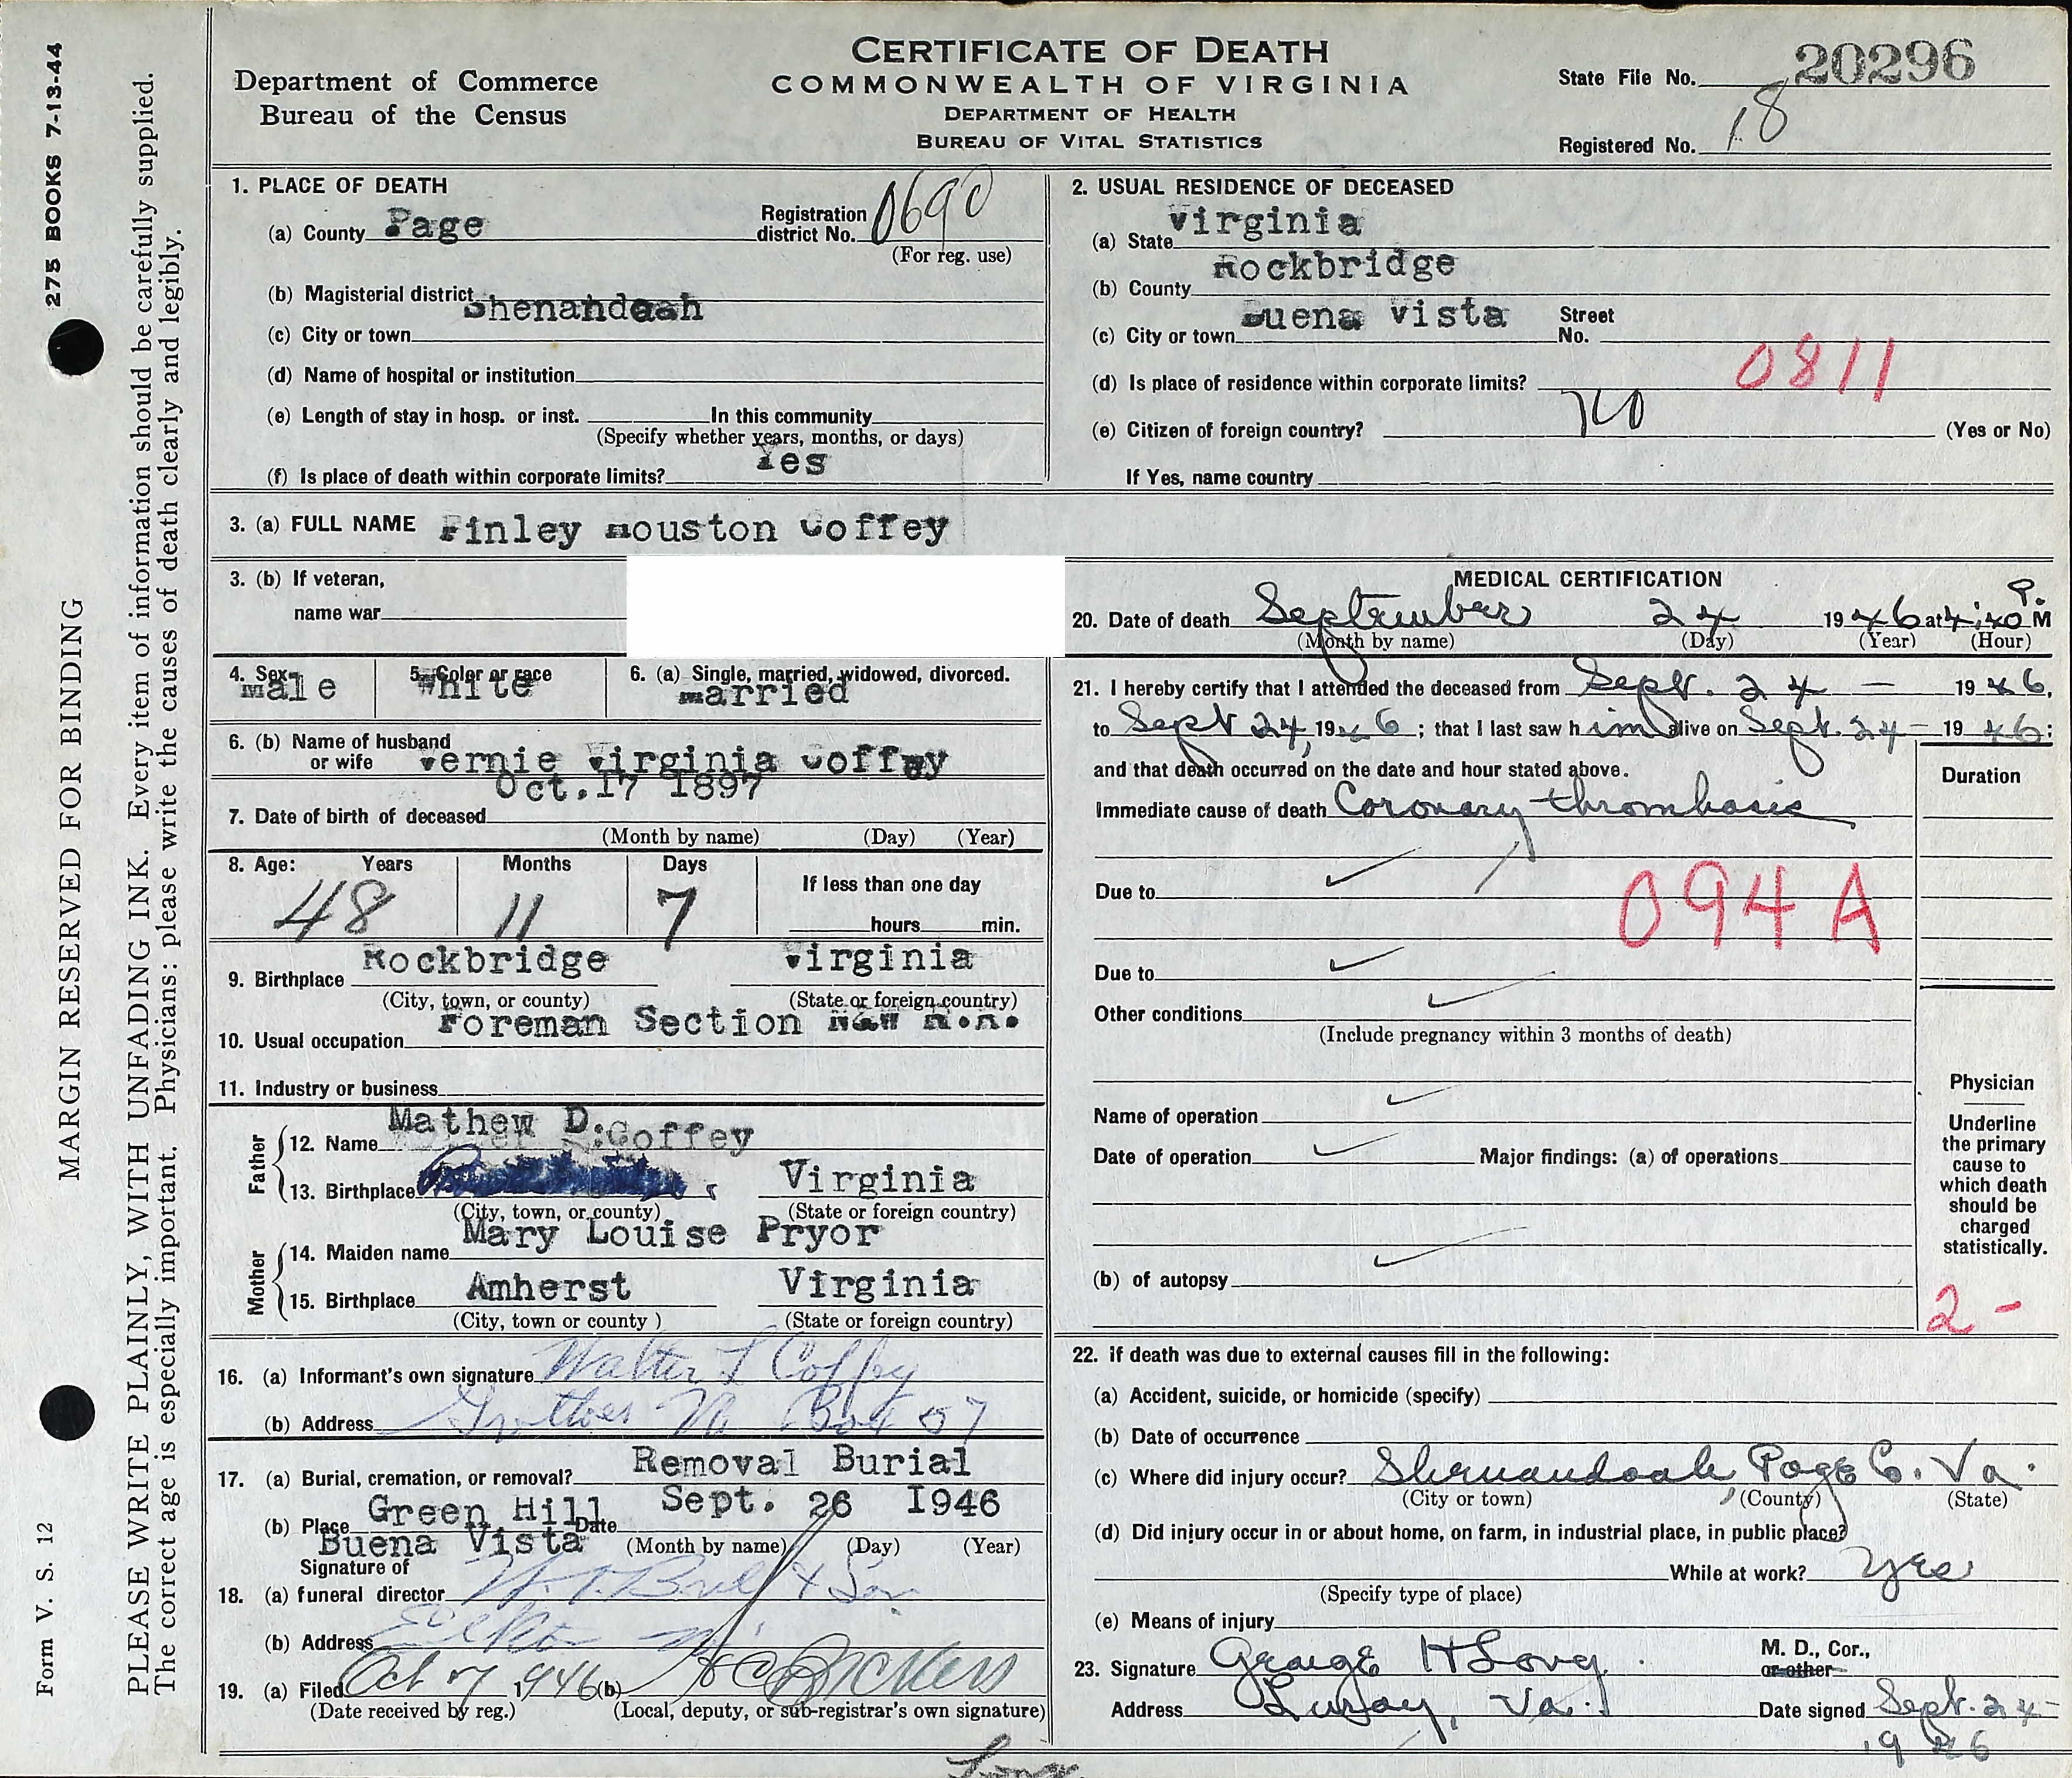 275 BOOKS 7-13-44
MARGIN RESERVED FOR BINDING
PLEASE WRITE PLAINLY, WITH UNFADING INK. Every item of information should be carefully supplied.
The correct age is especially important. Physicians: please write the causes of death clearly and legibly.
Form V. S. 12
Department of Commerce
Bureau of the Census
CERTIFICATE OF DEATH
COMMONWEALTH OF VIRGINIA
DEPARTMENT OF HEALTH
BUREAU OF VITAL STATISTICS
State File No. 20296
Registered No. 18
1. PLACE OF DEATH
(a) County Page
Registration district No. 0690
(For reg. use)
(b) Magisterial district Shenandoah
(c) City or town
(d) Name of hospital or institution
(e) Length of stay in hosp. or inst. In this community
(Specify whether years, months, or days)
(f) Is place of death within corporate limits? Yes
2. USUAL RESIDENCE OF DECEASED
(a) State Virginia
(b) County Rockbridge
(c) City or town Buena Vista Street No.
0811
(d) Is place of residence within corporate limits?
(e) Citizen of foreign country? no (Yes or No)
If Yes, name country
3. (a) FULL NAME Finley Houston Coffey
3. (b) If veteran,
name war
4. Sex Male
5. Color or race White
6. (a) Single, married, widowed, divorced. married
6. (b) Name of husband or wife Vernie Virginia Coffey
7. Date of birth of deceased Oct.17 1897
(Month by name) (Day) (Year)
8. Age: Years Months Days
48 11 7
If less than one day
hours min.
9. Birthplace Rockbridge Virginia
(City, town, or county) (State or foreign country)
10. Usual occupation Foreman Section N&W R.R.
11. Industry or business
Father
12. Name Mathew D. Coffey
13. Birthplace Virginia
(City, town, or county) (State or foreign country)
Mother
14. Maiden name Mary Louise Pryor
15. Birthplace Amherst Virginia
(City, town or county ) (State or foreign country)
16. (a) Informant's own signature Walter L Coffey
(b) Address Box 57
17. (a) Burial, cremation, or removal? Removal Burial
(b) Place Green Hill Date Sept. 26 I946
Buena Vista (Month by name) (Day) (Year)
Signature of
18. (a) funeral director & Son
(b) Address Elkton
19. (a) Filed Oct 7 1946 (b)
(Date received by reg.) (Local, deputy, or sub-registrar's own signature)
MEDICAL CERTIFICATION
20. Date of death September 24 1946 at 4:40 P. M
(Month by name) (Day) (Year) (Hour)
21. I hereby certify that I attended the deceased from Sept. 24 - 1946,
to Sept 24, 1946; that I last saw him alive on Sept. 24 - 1946;
and that death occurred on the date and hour stated above.
Duration
Immediate cause of death Coronary thrombosis
Due to
094 A
Due to
Other conditions
(Include pregnancy within 3 months of death)
Name of operation
Date of operation Major findings: (a) of operations
(b) of autopsy
Physician
Underline
the primary
cause to
which death
should be
charged
statistically.
2 -
22. If death was due to external causes fill in the following:
(a) Accident, suicide, or homicide (specify)
(b) Date of occurrence
(c) Where did injury occur? Shenandoah, Page Co. Va.
(City or town) (County) (State)
(d) Did injury occur in or about home, on farm, in industrial place, in public place?
While at work? yes
(Specify type of place)
(e) Means of injury
23. Signature George H Long. M. D., Cor.,
or other
Address Luray, Va. Date signed Sept. 24-
1946
Long